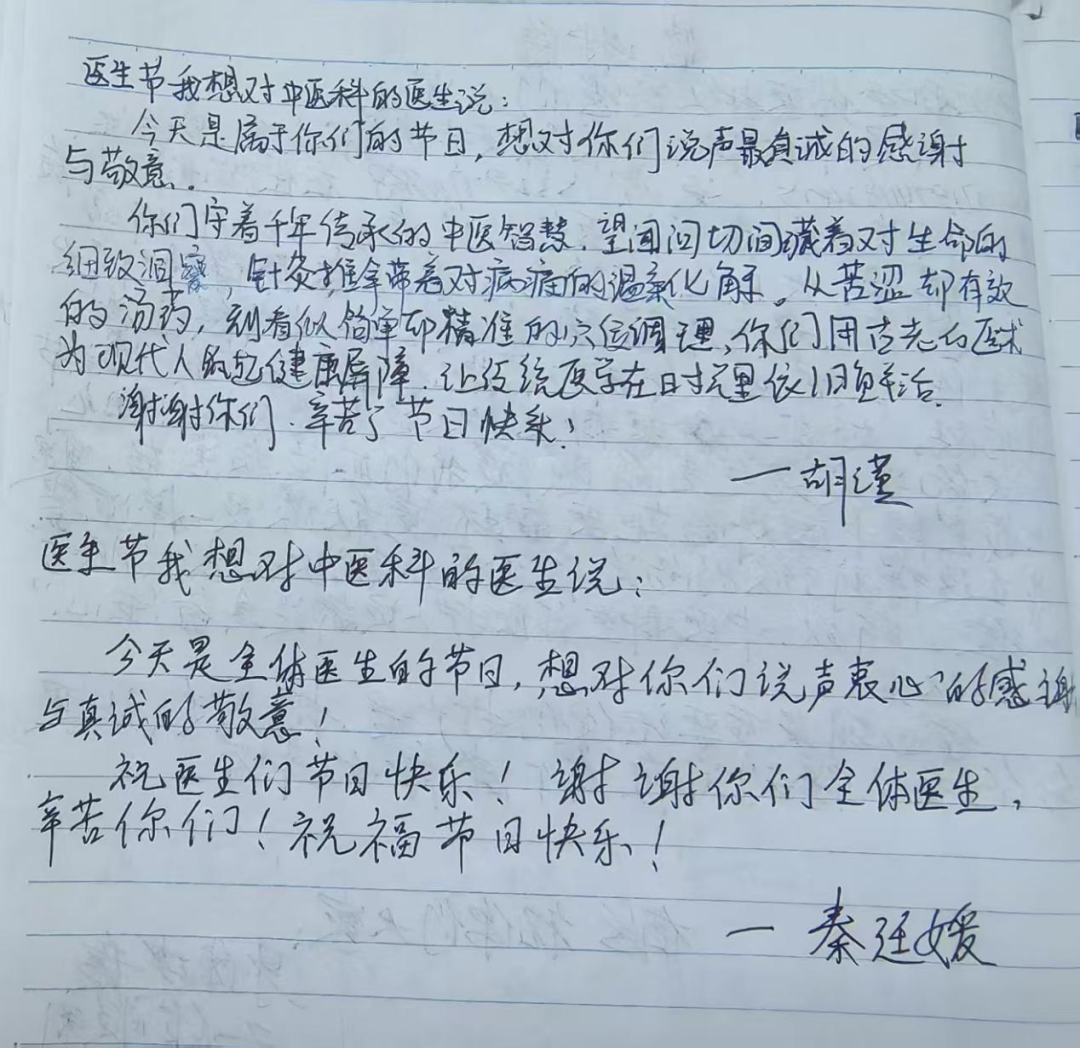 医生节我想对中医科的医生说：
今天是属于你们的节日，想对你们说声最真诚的感谢
与敬意.
你们守着千年传承的中医智慧.望闻问切间藏着对生命的
细致洞察，针灸推拿带着对病痛的温柔化解。从苦涩却有效
的汤药，到看似简单却精准的穴位调理，你们用古老的医术
为现代人筑起健康屏障.让传统医学在时光里依旧鲜活.
谢谢你们.辛苦了节日快乐！
一胡瑾
医生节我想对中医科的医生说：
今天是全体医生的节日，想对你们说声衷心的感谢
与真诚的敬意！
祝医生们节日快乐！谢谢你们全体医生，
辛苦你们！祝福节日快乐！
一秦廷媛